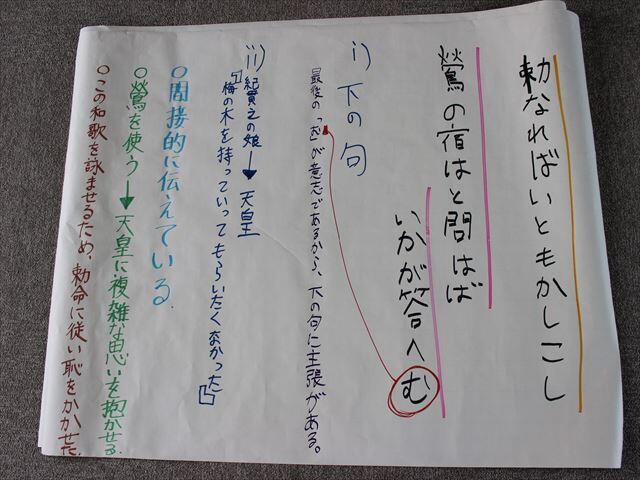 勅なればいともかしこし
鶯の宿はと問はば
いかが答へむ
i) 下の句
最後の「む」が意志であるから、下の句に主張がある。
ii) 紀貫之の娘→天皇
「梅の木を持っていってもらいたくなかった」
○間接的に伝えている.
○鶯を使う→天皇に複雑な思いを抱かせる.
○この和歌を詠ませるため、勅命に従い恥をかかせた.